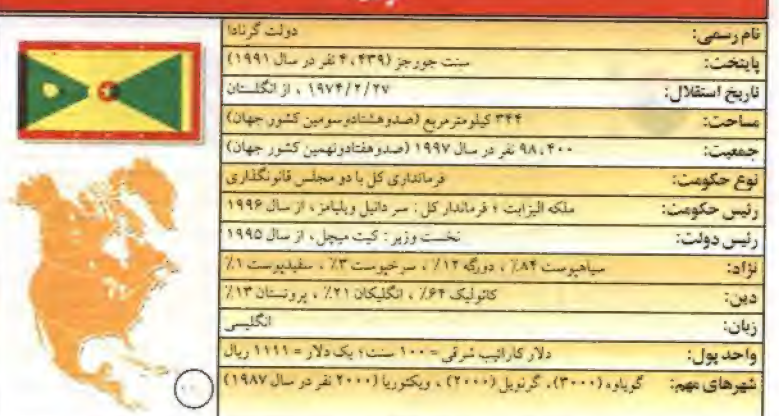 نام رسمی: دولت گرنادا
پایتخت: سنت جورجز (۴،۴۳۹ نفر در سال ۱۹۹۱)
تاریخ استقلال: ۱۹۷۴/۲/۲۷ ، از انگلستان
مساحت: ۳۴۴ کیلومترمربع (صدوهشتادوسومین کشور جهان)
جمعیت: ۹۸،۴۰۰ نفر در سال ۱۹۹۷ (صدوهفتادونهمین کشور جهان)
نوع حکومت: فرمانداری کل با دو مجلس قانونگذاری
رئیس حکومت: ملکه الیزابت ؛ فرماندار کل : سر دانیل ویلیامز ، از سال ۱۹۹۶
رئیس دولت: نخست وزیر : کیت میچل ، از سال ۱۹۹۵
نژاد: سیاهپوست ۸۴٪ ، دورگه ۱۲٪ ، سرخپوست ۳٪ ، سفیدپوست ۱٪
دین: کاتولیک ۶۴٪ ، انگلیکان ۲۱٪ ، پروتستان ۱۳٪
زبان: انگلیسی
واحد پول: دلار کارائیب شرقی = ۱۰۰ سنت؛ یک دلار = ۱۱۱۱ ریال
شهرهای مهم: گویاوه (۳۰۰۰)، گرنویل (۲۰۰۰) ، ویکتوریا (۲۰۰۰ نفر در سال ۱۹۸۷)